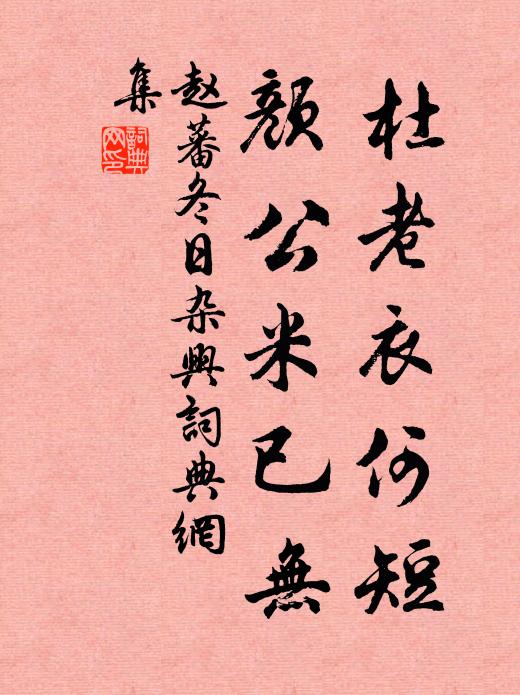 杜老衣何短
颜公米已無
赵蕃冬日杂興詞典網
集
詞典網印